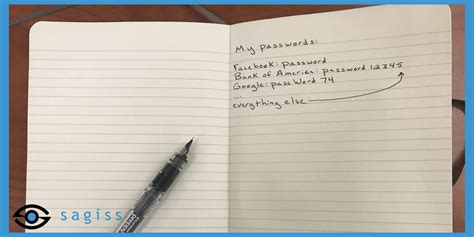 My passwords:
Facebook: password
Bank of America: password 12345
Google: passWord 74
...
everything else
sagiss